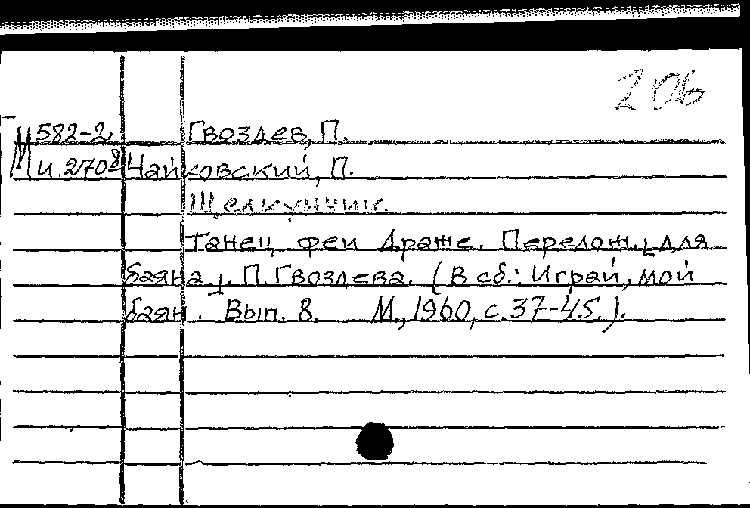 2 Об
М 582-2 Гвоздев, П.
И 2708 Чайковский, П.
Щелкунчик.
Танец феи Драже. Перелож. [для
баяна]. П. Гвоздева. (В сб.: Играй, мой
баян. Вып. 8. М., 1960, с. 37-45.).